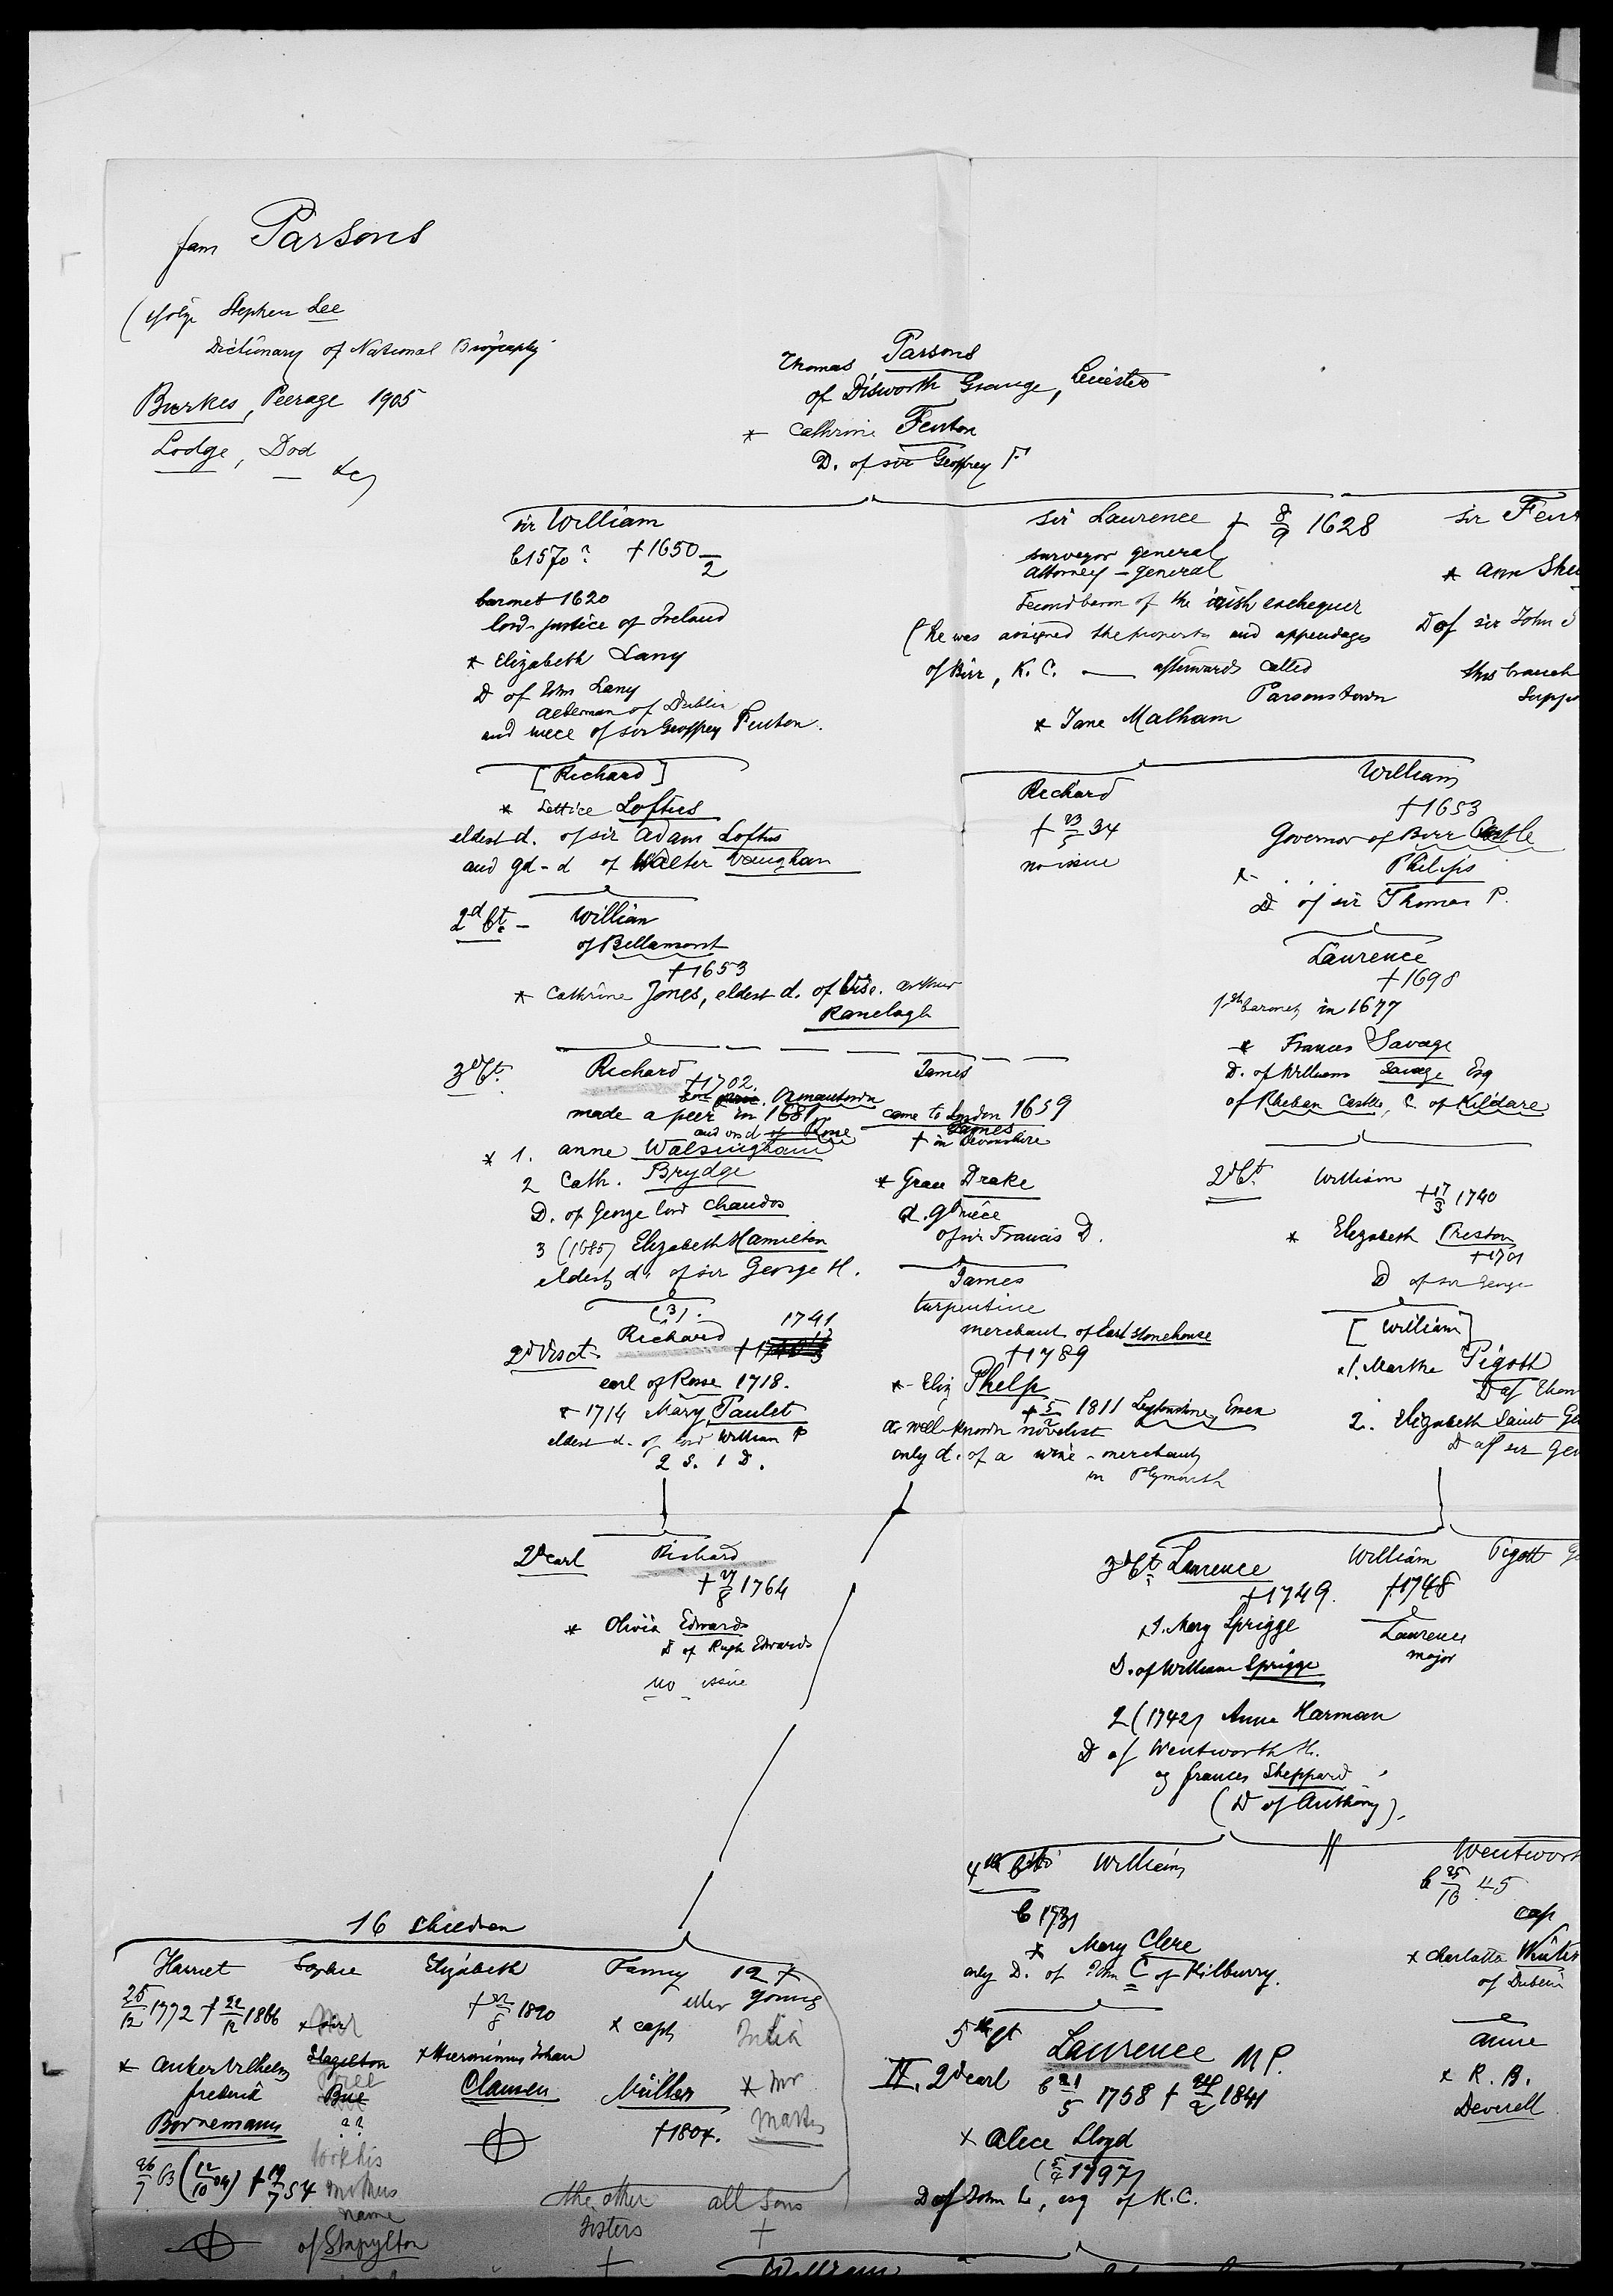 fam Parsons
Stephen Lee
Dictionary of National Biography
Burkes, Peerage 1905
Lodge, Dod
&c)
Thomas Parsons
of Disworth Grange, Leicester
* Cathrine Fenton
D. of sir Geoffrey F
sir William
b 1570? † 1650
2
baronet 1620
lord-justice of Ireland
* Elizabeth Lany
D of John Lany
alderman of Dublin
and niece of sir Geoffrey Fenton.
sir Laurence † 8/9 1628
surveyor general
attorney-general
second baron of the irish exchequer
(he was assigned the property and appendages
of Birr, K. C. — afterwards called
Parsonstown
* Jane Malham
sir Fent
* Ann She
D of sir John
this branch
suppo
[Richard]
* Lettice Loftus
eldest d. of sir Adam Loftus
and gd-d of Walter Vaughan
Richard
† 23/5 34
no issue
William
† 1653
Governor of Birr Castle
Philips
D of sir Thomas P.
2d bt. - William
of Bellamont
† 1653
* Cathrine Jones, eldest d. of Visc. Arthur
Ranelagh
Laurence
† 1698
baronet in 1677
* Frances Savage
D. of William Savage Esq
of Rheban Castle, C. of Kildare
3d bt. Richard
† 1702.
Oxmantown
made a peer in 1681
* 1. Anne Walsingham
2 Cath. Brydge
D. of George lord Chandos
3 (1685) Elizabeth Hamilton
eldest d. of sir George H.
James
came to London 1659
James
† in Devonshire
* Grace Drake
d. gd niece
of sir Francis D.
2d bt. William
† 17/3 1740
* Elizabeth Preston
† 1701
D of sir George
(3).
Richard 1741
2d Visct.
earl of Rosse 1718.
* 1714 Mary Paulet
eldest d. of lord William P
2 S. 1 D.
James
turpentine
merchant of East Stonehouse
† 1789
* Eliz Phelp
† 5/2 1811 Leytonstone, Essex
a well-known novelist
only d. of a wine-merchant
in Plymouth
[William]
1. Martha Pigott
D of Thom
2. Elizabeth Saint Ge
D of sir Geo
2d earl Richard
† 27/8 1764
* Olivia Edwards
D of Hugh Edwards
no issue
3d bt. Laurence
† 1749.
1. Mary Sprigge
D. of William Sprigge
2 (1742) Anne Harman
D of Wentworth H.
og Frances Sheppard
(D of Anthony).
William
† 1748
Laurence
major
Pigott
William
b 1731
* Mary Clere
only D. of John C of Kilburry.
Wentwor
b 25/10 45
cap
x Charlotte White
of Dublin
16 children
Harriet
25/12 1772 † 22/12 1866
* Anker Vilhelm
Frederik
Bornemann
26/7 63 (12/10 04) † 19/7 54
Sophie
Stapilton
??
took his
mothers
name
of Stapylton
Elizabeth
† 22/8 1820
x Hieronimus Johan
Clausen
Fanny
x capt
Müller
† 1804.
12 †
young
Julia
* Mr
the other
sisters
†
all sons
†
5th bt Laurence M P.
II. 2d earl b 21/5 1758 † 24/2 1841
x Alice Lloyd
(5/4 1797)
D of John L, esq of K.C.
Anne
x R. B.
Deverell
William